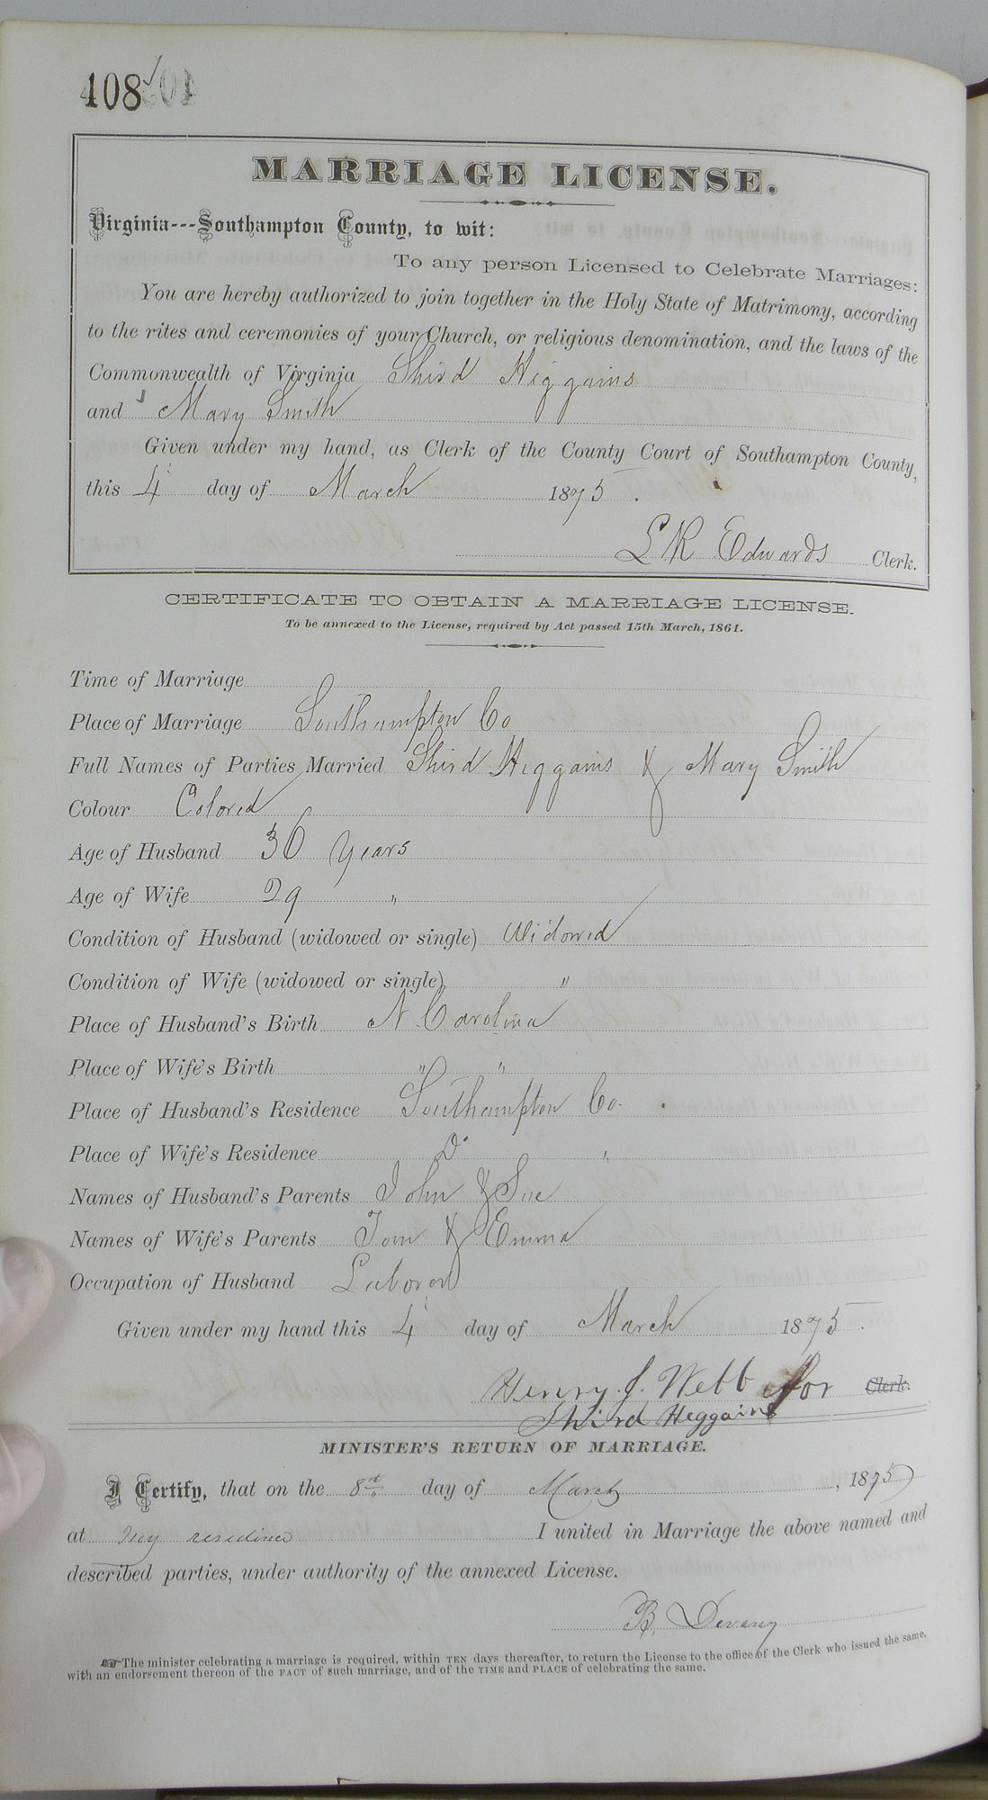 408
MARRIAGE LICENSE.
Virginia---Southampton County, to wit:
To any person Licensed to Celebrate Marriages:
You are hereby authorized to join together in the Holy State of Matrimony, according
to the rites and ceremonies of your Church, or religious denomination, and the laws of the
Commonwealth of Virginia Shird Higgains
and Mary Smith
Given under my hand, as Clerk of the County Court of Southampton County,
this 4 day of March 1875.
L R Edwards Clerk.
CERTIFICATE TO OBTAIN A MARRIAGE LICENSE.
To be annexed to the License, required by Act passed 15th March, 1861.
Time of Marriage
Place of Marriage Southampton Co
Full Names of Parties Married Shird Higgains & Mary Smith
Colour Colored
Age of Husband 36 years
Age of Wife 29 "
Condition of Husband (widowed or single) Widowed
Condition of Wife (widowed or single) "
Place of Husband's Birth N. Carolina
Place of Wife's Birth " "
Place of Husband's Residence Southampton Co.
Place of Wife's Residence Do "
Names of Husband's Parents John & Sue
Names of Wife's Parents Tom & Emma
Occupation of Husband Laborer
Given under my hand this 4 day of March 1875.
Henry J. Webb for Clerk.
Shird Heggains
MINISTER'S RETURN OF MARRIAGE.
I Certify, that on the 8th day of March, 1875
at my residence I united in Marriage the above named and
described parties, under authority of the annexed License.
B. Devany
The minister celebrating a marriage is required, within TEN days thereafter, to return the License to the office of the Clerk who issued the same,
with an endorsement thereon of the FACT of such marriage, and of the TIME and PLACE of celebrating the same.